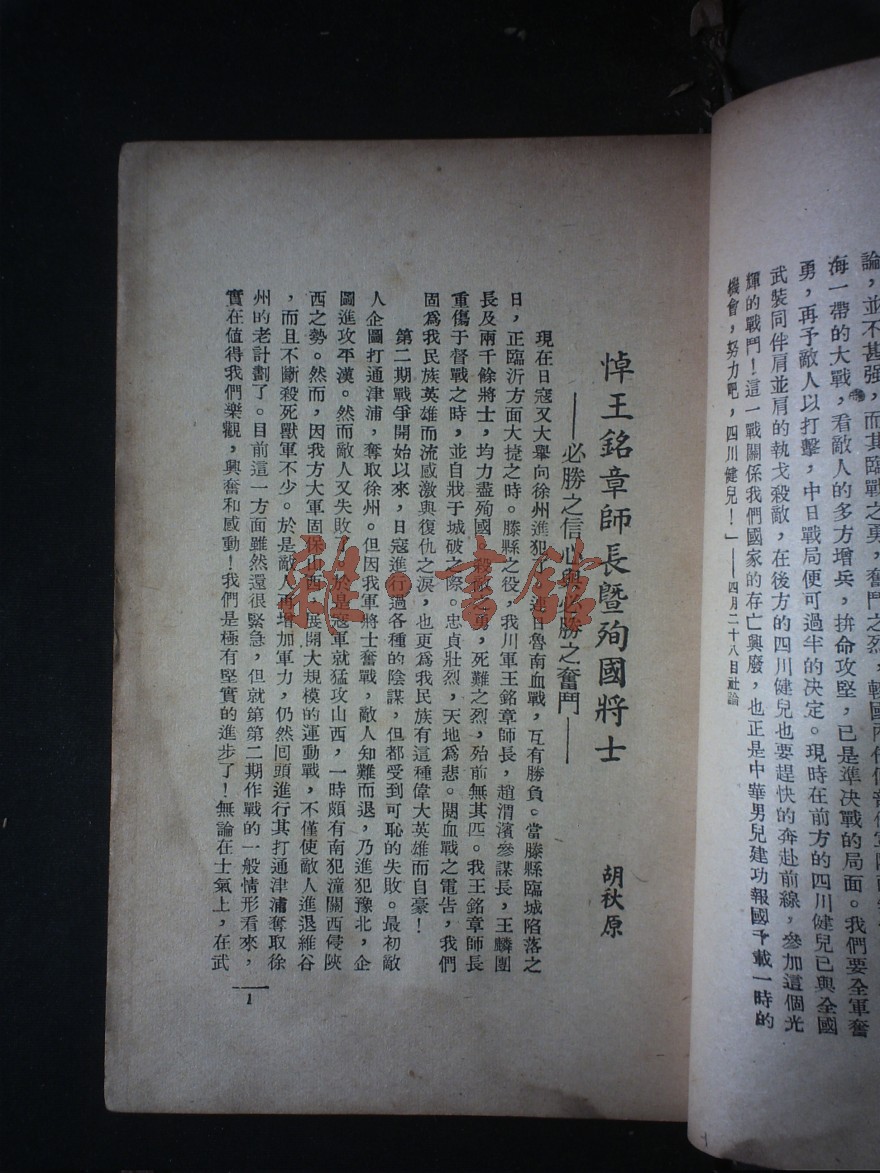 論，並不甚强，而其臨戰之勇，奮鬥之烈，
海一帶的大戰，看敵人的多方增兵，拚命攻堅，已是準決戰的局面。我們要全軍奮
勇，再予敵人以打擊，中日戰局便可過半的決定。現時在前方的四川健兒已與全國
武裝同伴肩並肩的執戈殺敵，在後方的四川健兒也要趕快的奔赴前線，參加這個光
輝的戰鬥！這一戰關係我們國家的存亡興廢，也正是中華男兒建功報國千載一時的
機會，努力吧，四川健兒！」——四月二十八日社論
悼王銘章師長暨殉國將士
——必勝之信心與必勝之奮鬥——
胡秋原
現在日寇又大舉向徐州進犯了，連日魯南血戰，互有勝負。當滕縣臨城陷落之
日，正臨沂方面大捷之時。滕縣之役，我川軍王銘章師長，趙渭濱參謀長，王麟團
長及兩千餘將士，均力盡殉國，殺敵之勇，死難之烈，殆前無其匹。我王銘章師長
重傷于督戰之時，並自戕于城破之際。忠貞壯烈，天地爲悲。閱血戰之電告，我們
固爲我民族英雄而流感激與復仇之淚，也更爲我民族有這種偉大英雄而自豪！
第二期戰爭開始以來，日寇進行過各種的陰謀，但都受到可恥的失敗。最初敵
人企圖打通津浦，奪取徐州。但因我軍將士奮戰，敵人知難而退，乃進犯豫北，企
圖進攻平漢。然而敵人又失敗了。於是寇軍就猛攻山西，一時頗有南犯潼關西侵陝
西之勢。然而，因我方大軍固保山西，展開大規模的運動戰，不僅使敵人進退維谷
，而且不斷殺死獸軍不少。於是敵人再增加軍力，仍然囘頭進行其打通津浦奪取徐
州的老計劃了。目前這一方面雖然還很緊急，但就第第二期作戰的一般情形看來，
實在値得我們樂觀，興奮和感動！我們是極有堅實的進步了！無論在士氣上，在武
1
雜·書館